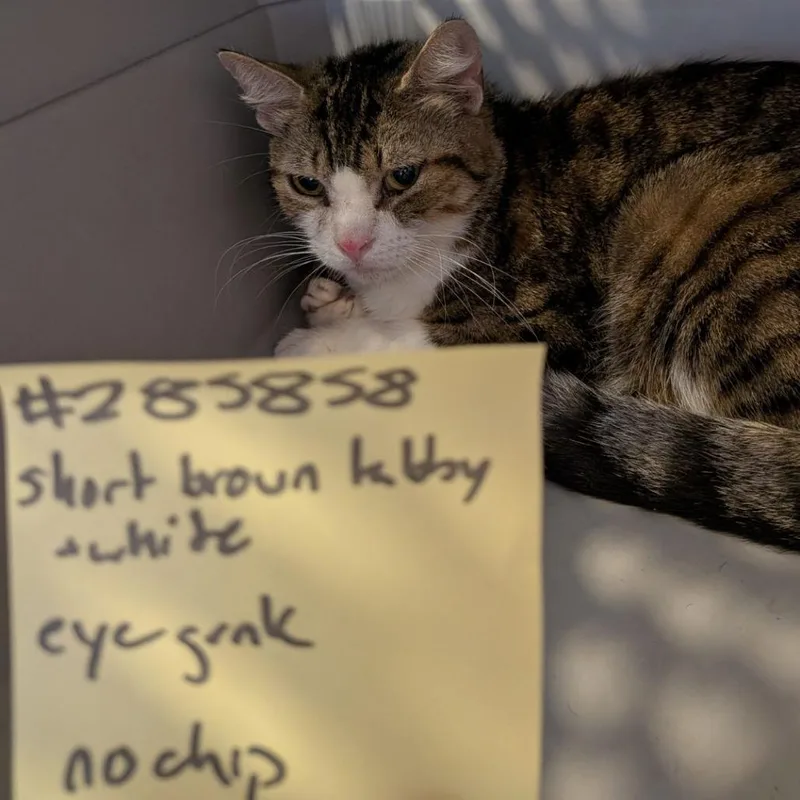 #285858
short brown tabby
+ white
eye gunk
no chip